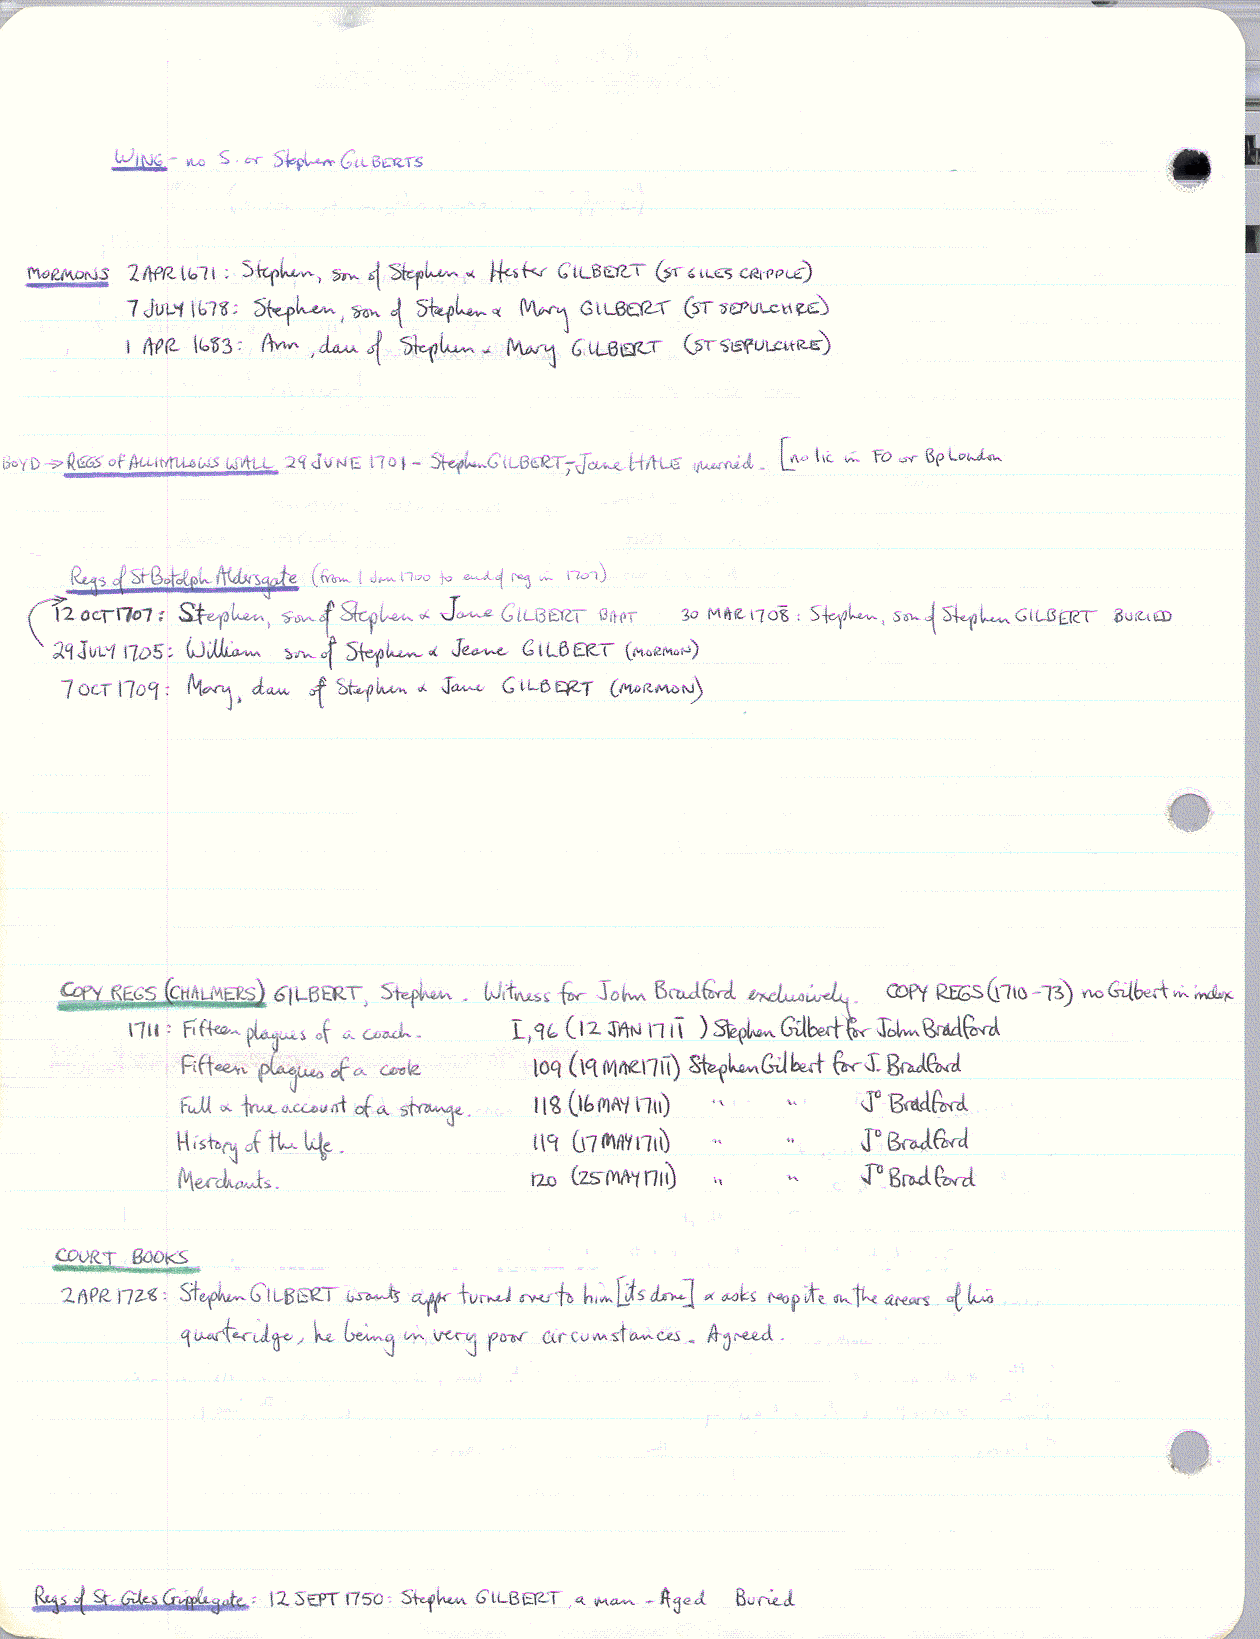 WING - no S. or Stephen GILBERTS
MORMONS 2 APR 1671: Stephen, son of Stephen & Hester GILBERT (ST GILES CRIPPLE)
7 JULY 1678: Stephen, son of Stephen & Mary GILBERT (ST SEPULCHRE)
1 APR 1683: Ann, dau of Stephen & Mary GILBERT (ST SEPULCHRE)
BOYD → REGS of ALLHALLOWS WALL 29 JUNE 1701 - Stephen GILBERT, - Jane HALE married. [no lic in FO or Bp London
Regs of St Botolph Aldersgate (from 1 Jan 1700 to end of reg in 1707)
12 OCT 1707: Stephen, son of Stephen & Jane GILBERT BAPT 30 MAR 1708: Stephen, son of Stephen GILBERT BURIED
29 JULY 1705: William son of Stephen & Jeane GILBERT (MORMON)
7 OCT 1709: Mary, dau of Stephen & Jane GILBERT (MORMON)
COPY REGS (CHALMERS) GILBERT, Stephen. Witness for John Bradford exclusively. COPY REGS (1710-73) no Gilbert in index
1711: Fifteen plagues of a coach. I, 96 (12 JAN 1711) Stephen Gilbert for John Bradford
Fifteen plagues of a cook 109 (19 MAR 1711) Stephen Gilbert for J. Bradford
Full & true account of a strange. 118 (16 MAY 1711) " " Jº Bradford
History of the life. 119 (17 MAY 1711) " " Jº Bradford
Merchants. 120 (25 MAY 1711) " " Jº Bradford
COURT BOOKS
2 APR 1728: Stephen GILBERT wants appr turned over to him [its done] & asks respite on the arears of his
quarteridge, he being in very poor circumstances. Agreed.
Regs of St. Giles Cripplegate: 12 SEPT 1750: Stephen GILBERT, a man - Aged Buried